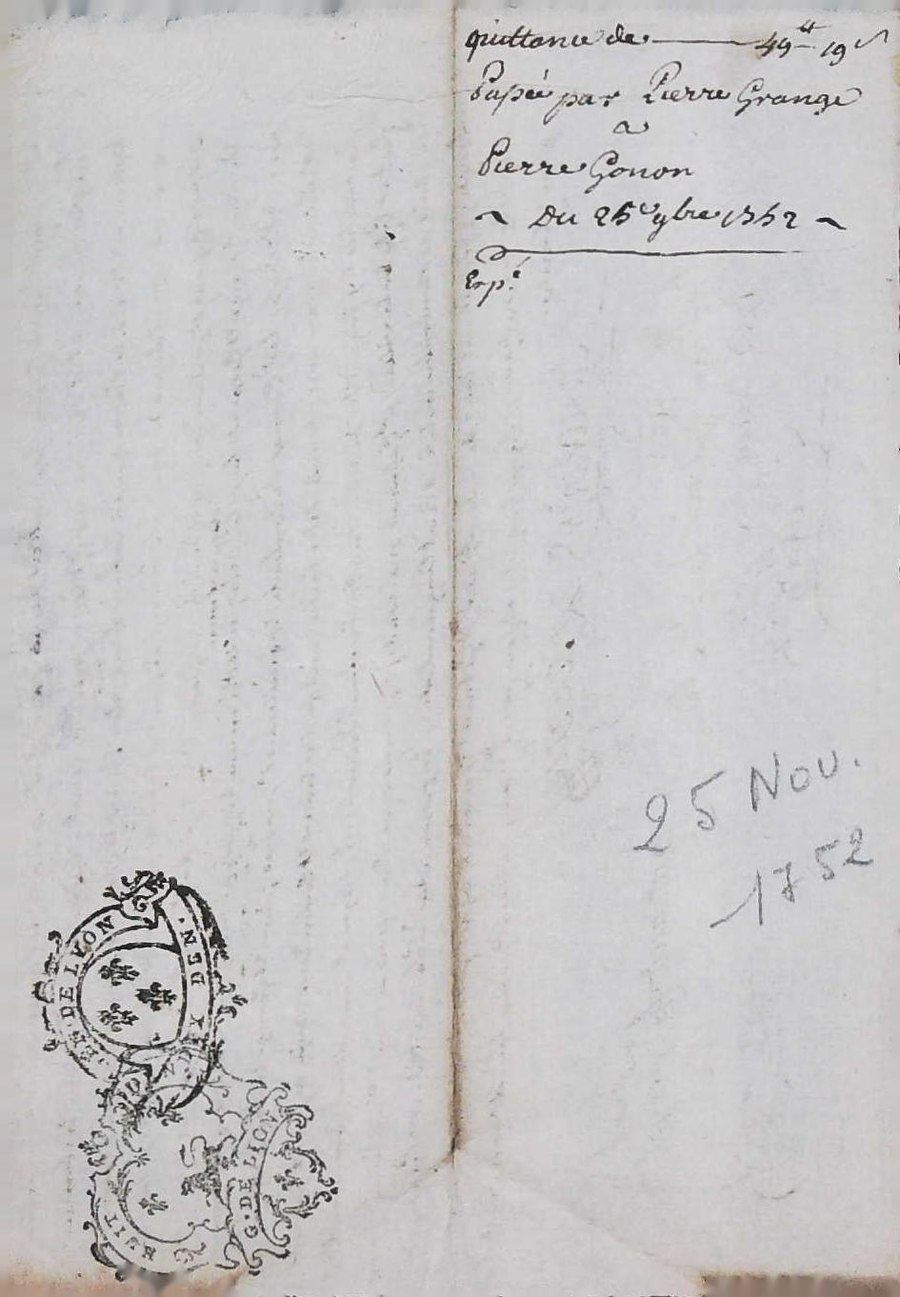 quittance de — 49 ᵗᵗ 19 ˢ
Passée par Pierre Grange
a
Pierre Gonon
~ Du 25ᵉ 9bre 1752 ~
Exp.é
25 Nov.
1752
GEN. DE LYON
DEN.
G. DE LION
HUIT